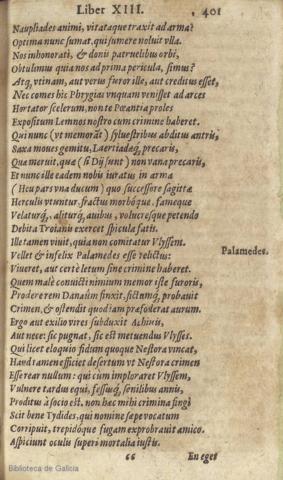 Liber XIII. 401
Naupliades animi, vitataque traxit ad arma?
Optima nunc sumat, qui sumere noluit vlla.
Nos inhonorati, & donis patruelibus orbi,
Obtulimus quia nos ad prima pericula, simus?
Atq, vtinam, aut verus furor ille, aut creditus esset,
Nec comes hic Phrygias vnquam venisset ad arces
Hortator scelerum, non te Pœantia proles
Expositum Lemnos nostro cum crimine haberet.
Qui nunc (vt memorãt) syluestribus abditus antris,
Saxa moues gemitu, Laertiadæq, precaris,
Quæ meruit, quæ (si Dij sunt) non vana precaris,
Et nunc ille eadem nobis iuratus in arma
(Heu pars vna ducum) quo successore sagittæ
Herculis vtuntur, fractus morboq́ue fameque
Velaturq́, aliturq́, auibus, volucresque petendo
Debita Troianis exercet spicula fatis.
Ille tamen viuit, quia non comitatur Vlyssem.
Palamedes.
Vellet & infelix Palamedes esse relictus:
Viueret, aut certè letum sine crimine haberet.
Quem malè conuicti nimium memor iste furoris,
Prodere rem Danaûm finxit, fictumq́, probauit
Crimen, & ostendit quod iam præfoderat aurum.
Ergo aut exilio vires subduxit Achiuis,
Aut nece: sic pugnat, sic est metuendus Vlysses.
Qui licet eloquio fidum quoque Nestora vincat,
Haud tamen efficiet desertum vt Nestora crimen
Esse rear nullum: qui cum imploraret Vlyssem,
Vulnere tardus equi, fessusq́, senilibus annis,
Proditus à socio est. non hæc mihi crimina fingi
Scit bene Tydides, qui nomine sæpe vocatum
Corripuit, trepidóque fugam exprobrauit amico.
Aspiciunt oculis superi mortalia iustis.
Biblioteca de Galicia
66 En eget